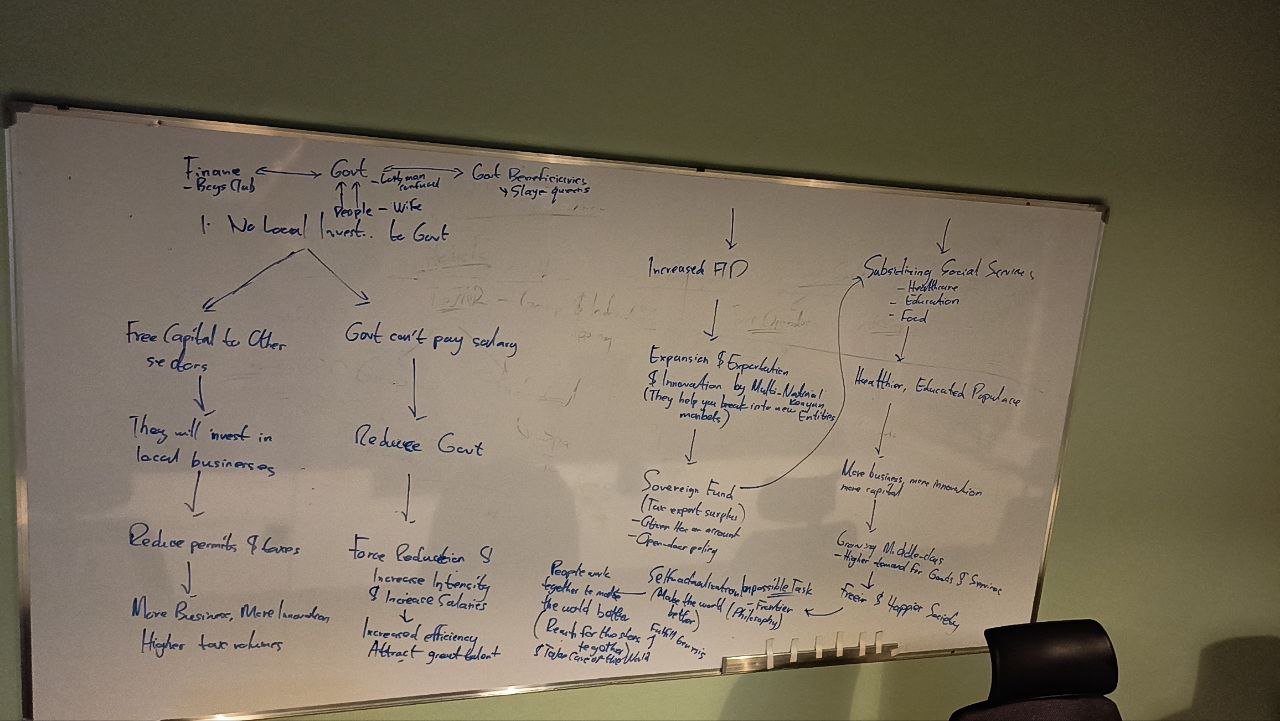 Finance
- Boys Club
Govt
- confused
Govt Beneficiaries
Slay queens
People - Wife
1. No Local Invest.. to Govt
Free Capital to Other
sectors
They will invest in
local businesses
Reduce permits & taxes
More Business, More Innovation
Higher tax volumes
Govt can't pay salary
Reduce Govt
Force Reduction &
Increase Intensity
& Increase Salaries
Increased efficiency
Attract great talent
Increased FID
Expansion & Exportation
& Innovation by Multi-National
Kenyan
Entities
(They help you break into new
markets)
Sovereign Fund
(Tax export surplus)
- Citizen has an account
- Open-door policy
Subsidizing Social Services
- Healthcare
- Education
- Food
Healthier, Educated Populace
More business, more innovation
more capital
Growing Middle-class
- Higher demand for Goods & Services
Freer & Happier Society
Impossible Task
- Frontier
(Philosophy)
Self actualization
(Make the world
better)
People work
together to make
the world better
(Reach for the stars
together)
& Take Care of the World